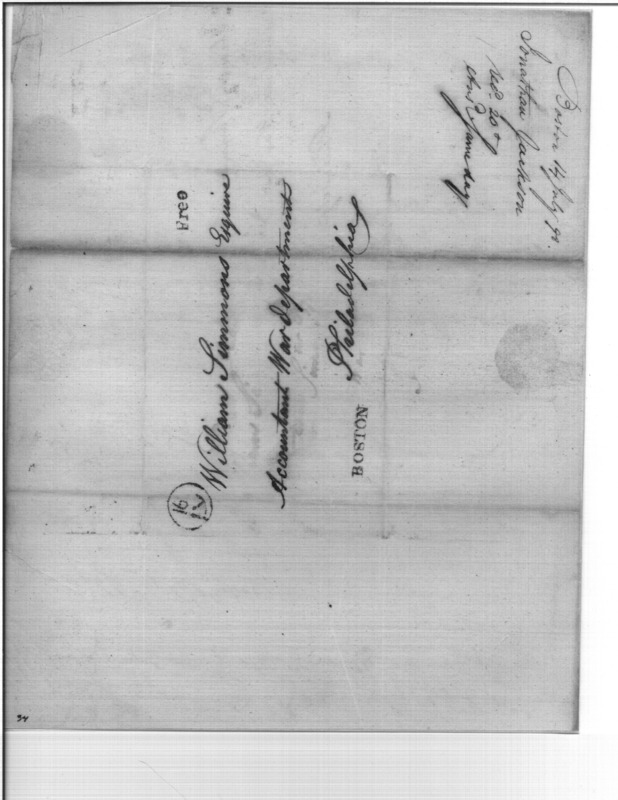 Free
William Simmons Esquire
Accountant War department
Philadelphia
BOSTON
16
Boston 14 July 98.
Jonathan Jackson
Recd. 20th
Ansd same day
54